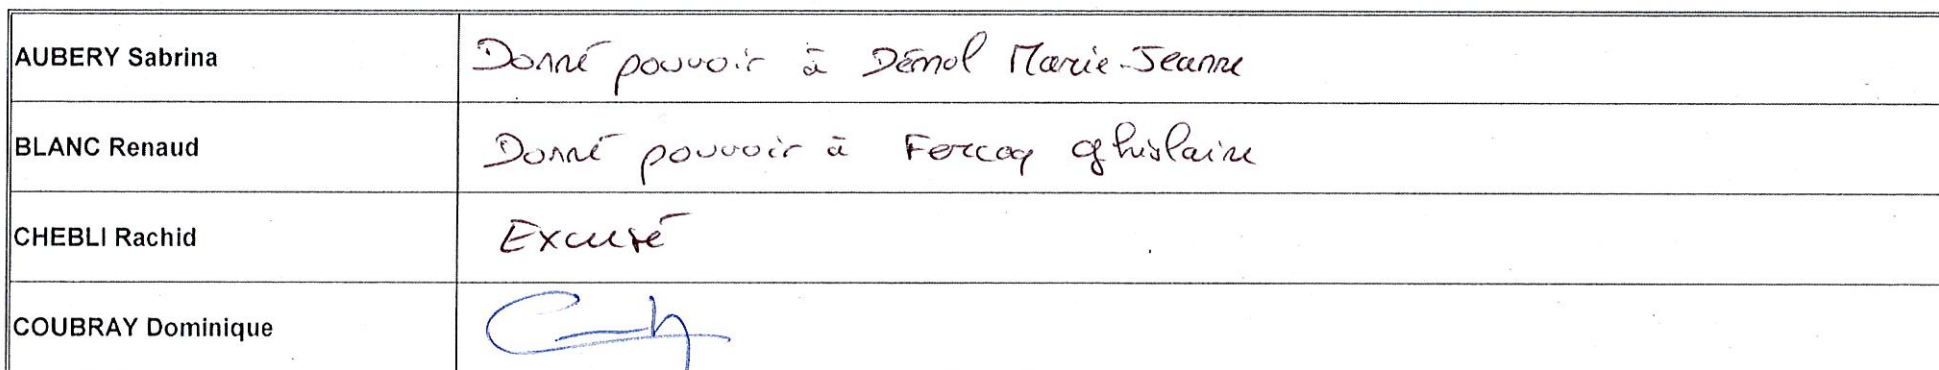 AUBERY Sabrina Donné pouvoir à Démol Marie-Jeanne
BLANC Renaud Donné pouvoir à Fercoq Ghislaine
CHEBLI Rachid Excusé
COUBRAY Dominique